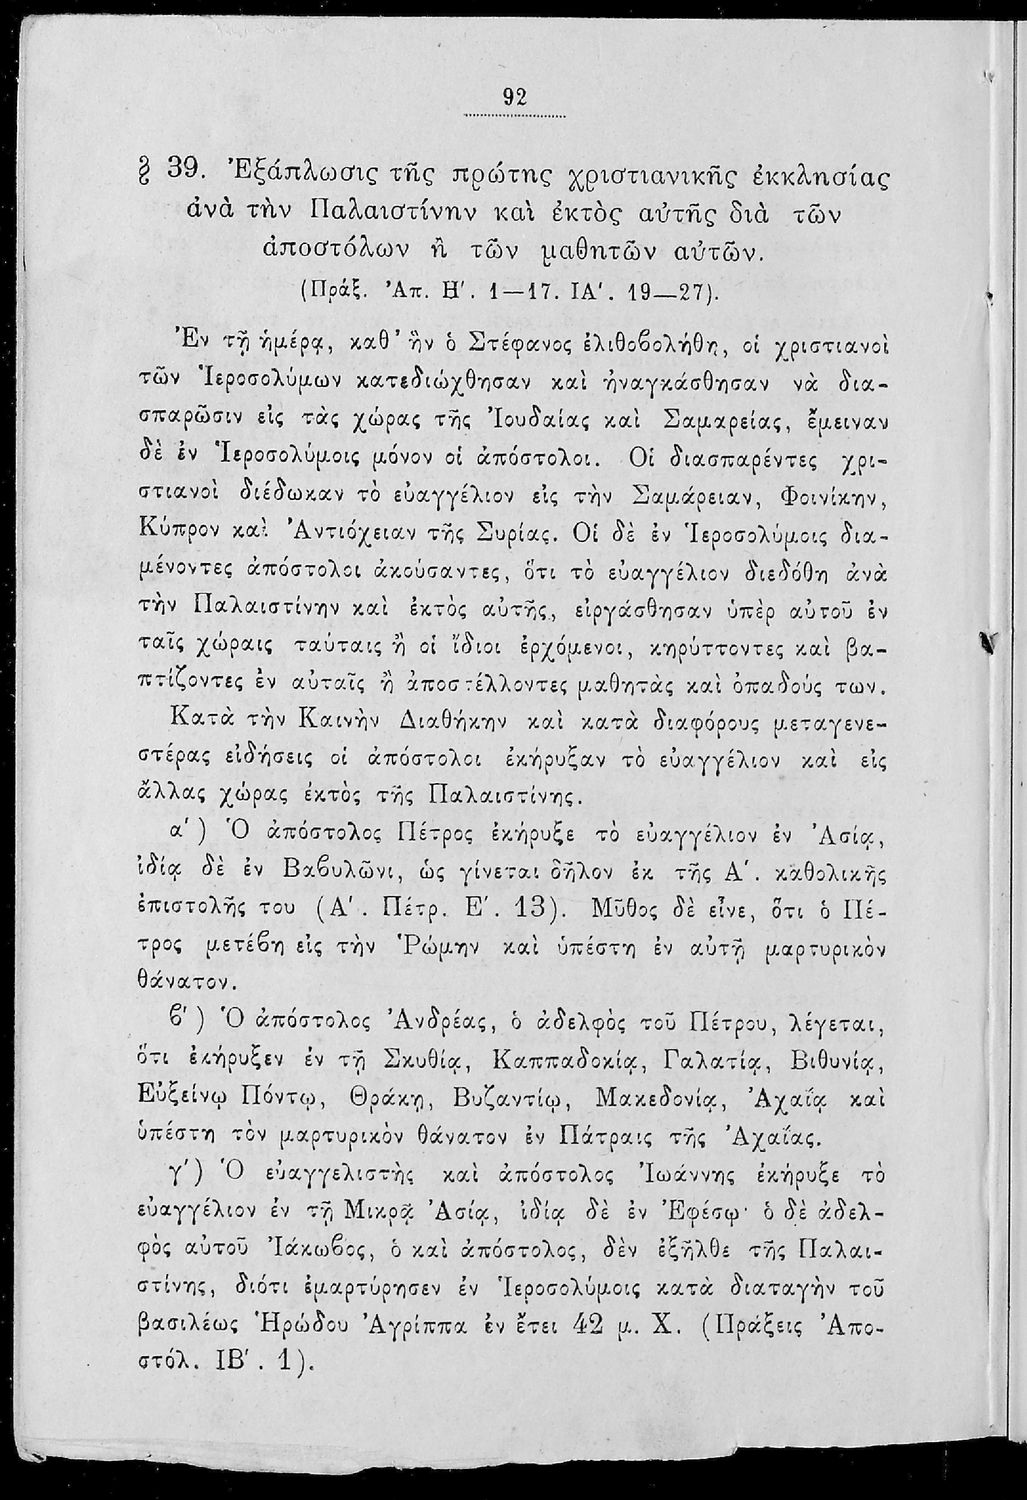 92
§ 39. Ἐξάπλωσις τῆς πρώτης χριστιανικῆς ἐκκλησίας
ἀνὰ τὴν Παλαιστίνην καὶ ἐκτὸς αὐτῆς διὰ τῶν
ἀποστόλων ἢ τῶν μαθητῶν αὐτῶν.
(Πράξ. Ἀπ. Η΄. 1—17. ΙΑ΄. 19—27).
Ἐν τῇ ἡμέρᾳ, καθ᾽ ἣν ὁ Στέφανος ἐλιθοϐολήθη, οἱ χριστιανοὶ
τῶν Ἱεροσολύμων κατεδιώχθησαν καὶ ἠναγκάσθησαν νὰ δια-
σπαρῶσιν εἰς τὰς χώρας τῆς Ἰουδαίας καὶ Σαμαρείας, ἔμειναν
δὲ ἐν Ἱεροσολύμοις μόνον οἱ ἀπόστολοι. Οἱ διασπαρέντες χρι-
στιανοὶ διέδωκαν τὸ εὐαγγέλιον εἰς τὴν Σαμάρειαν, Φοινίκην,
Κύπρον καὶ Ἀντιόχειαν τῆς Συρίας. Οἱ δὲ ἐν Ἱεροσολύμοις δια-
μένοντες ἀπόστολοι ἀκούσαντες, ὅτι τὸ εὐαγγέλιον διεδόθη ἀνὰ
τὴν Παλαιστίνην καὶ ἐκτὸς αὐτῆς, εἰργάσθησαν ὑπὲρ αὐτοῦ ἐν
ταῖς χώραις ταύταις ἢ οἱ ἴδιοι ἐρχόμενοι, κηρύττοντες καὶ βα-
πτίζοντες ἐν αὐταῖς ἢ ἀποστέλλοντες μαθητὰς καὶ ὀπαδούς των.
Κατὰ τὴν Καινὴν Διαθήκην καὶ κατὰ διαφόρους μεταγενε-
στέρας εἰδήσεις οἱ ἀπόστολοι ἐκήρυξαν τὸ εὐαγγέλιον καὶ εἰς
ἄλλας χώρας ἐκτὸς τῆς Παλαιστίνης.
α΄) Ὁ ἀπόστολος Πέτρος ἐκήρυξε τὸ εὐαγγέλιον ἐν Ἀσίᾳ,
ἰδίᾳ δὲ ἐν Βαϐυλῶνι, ὡς γίνεται δῆλον ἐκ τῆς Α΄. καθολικῆς
ἐπιστολῆς του (Α΄. Πέτρ. Ε΄. 13). Μῦθος δὲ εἶνε, ὅτι ὁ Πέ-
τρος μετέϐη εἰς τὴν Ῥώμην καὶ ὑπέστη ἐν αὐτῇ μαρτυρικὸν
θάνατον.
ϐ΄) Ὁ ἀπόστολος Ἀνδρέας, ὁ ἀδελφὸς τοῦ Πέτρου, λέγεται,
ὅτι ἐκήρυξεν ἐν τῇ Σκυθίᾳ, Καππαδοκίᾳ, Γαλατίᾳ, Βιθυνίᾳ,
Εὐξείνῳ Πόντῳ, Θράκῃ, Βυζαντίῳ, Μακεδονίᾳ, Ἀχαΐᾳ καὶ
ὑπέστη τὸν μαρτυρικὸν θάνατον ἐν Πάτραις τῆς Ἀχαΐας.
γ΄) Ὁ εὐαγγελιστὴς καὶ ἀπόστολος Ἰωάννης ἐκήρυξε τὸ
εὐαγγέλιον ἐν τῇ Μικρᾷ Ἀσίᾳ, ἰδίᾳ δὲ ἐν Ἐφέσῳ· ὁ δὲ ἀδελ-
φὸς αὐτοῦ Ἰάκωϐος, ὁ καὶ ἀπόστολος, δὲν ἐξῆλθε τῆς Παλαι-
στίνης, διότι ἐμαρτύρησεν ἐν Ἱεροσολύμοις κατὰ διαταγὴν τοῦ
βασιλέως Ἡρώδου Ἀγρίππα ἐν ἔτει 42 μ. Χ. (Πράξεις Ἀπο-
στόλ. ΙΒ΄. 1).